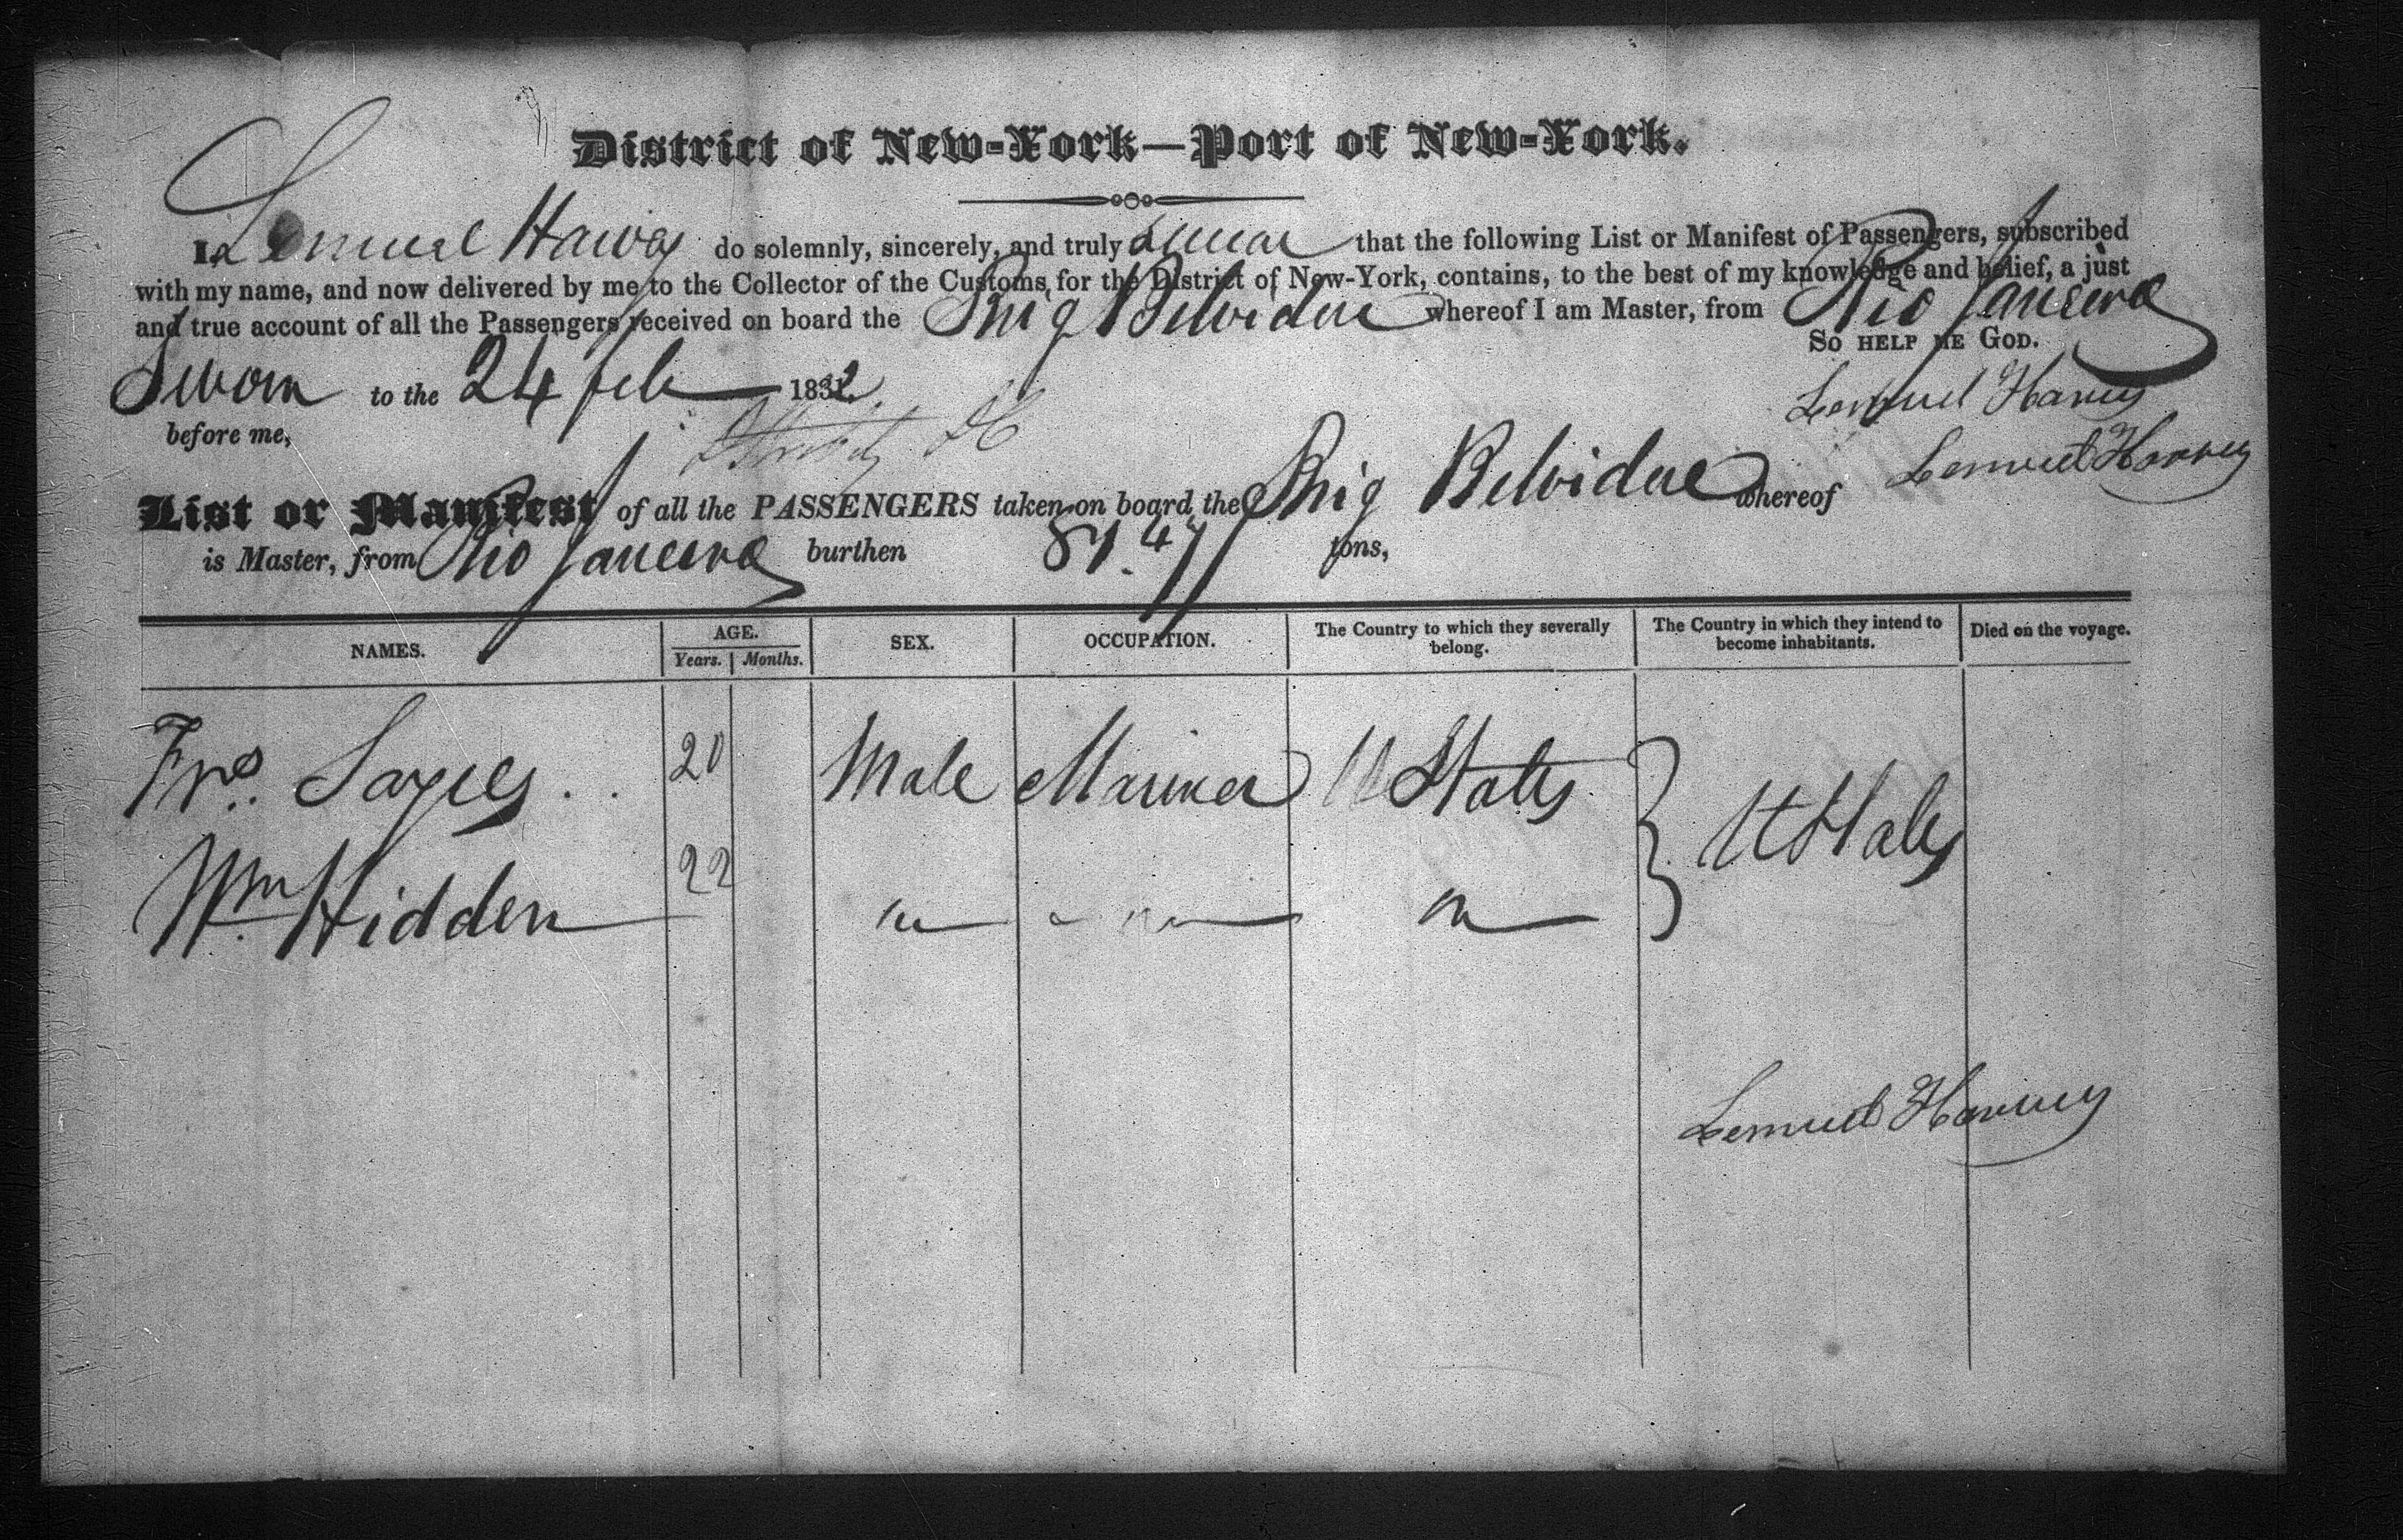 District of New-York—Port of New-York.
I, Lemuel Harvey do solemnly, sincerely, and truly swear that the following List or Manifest of Passengers, subscribed
with my name, and now delivered by me to the Collector of the Customs, for the District of New-York, contains, to the best of my knowledge and belief, a just
and true account of all the Passengers received on board the Brig Belvidere whereof I am Master, from Rio Janeiro
So help me God.
Sworn to the 24 Feb 1832
Lemuel Harvey
before me,
Lemuel Harvey
List or Manifest of all the PASSENGERS taken on board the Brig Belvidere whereof
is Master, from Rio Janeiro burthen tons,
NAMES. AGE. Years. Months. SEX. OCCUPATION. The Country to which they severally belong. The Country in which they intend to become inhabitants. Died on the voyage.
Frs. Sayles 20 Male Mariner U States
U States
Wm Hidden 22
Lemuel Harvey